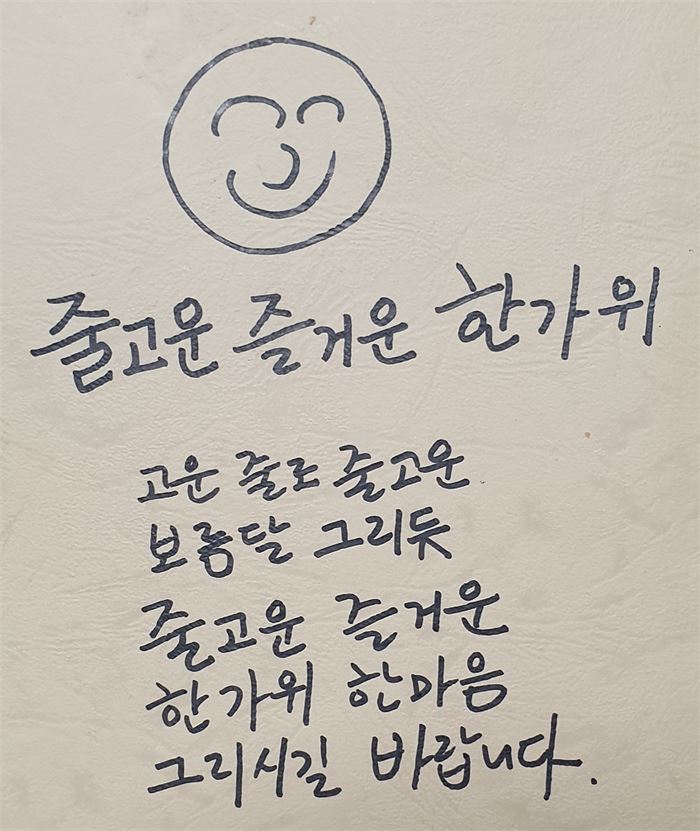 줄고운 즐거운 한가위
고운 줄로 줄고운
보름달 그리듯
줄고운 즐거운
한가위 한마음
그리시길 바랍니다.